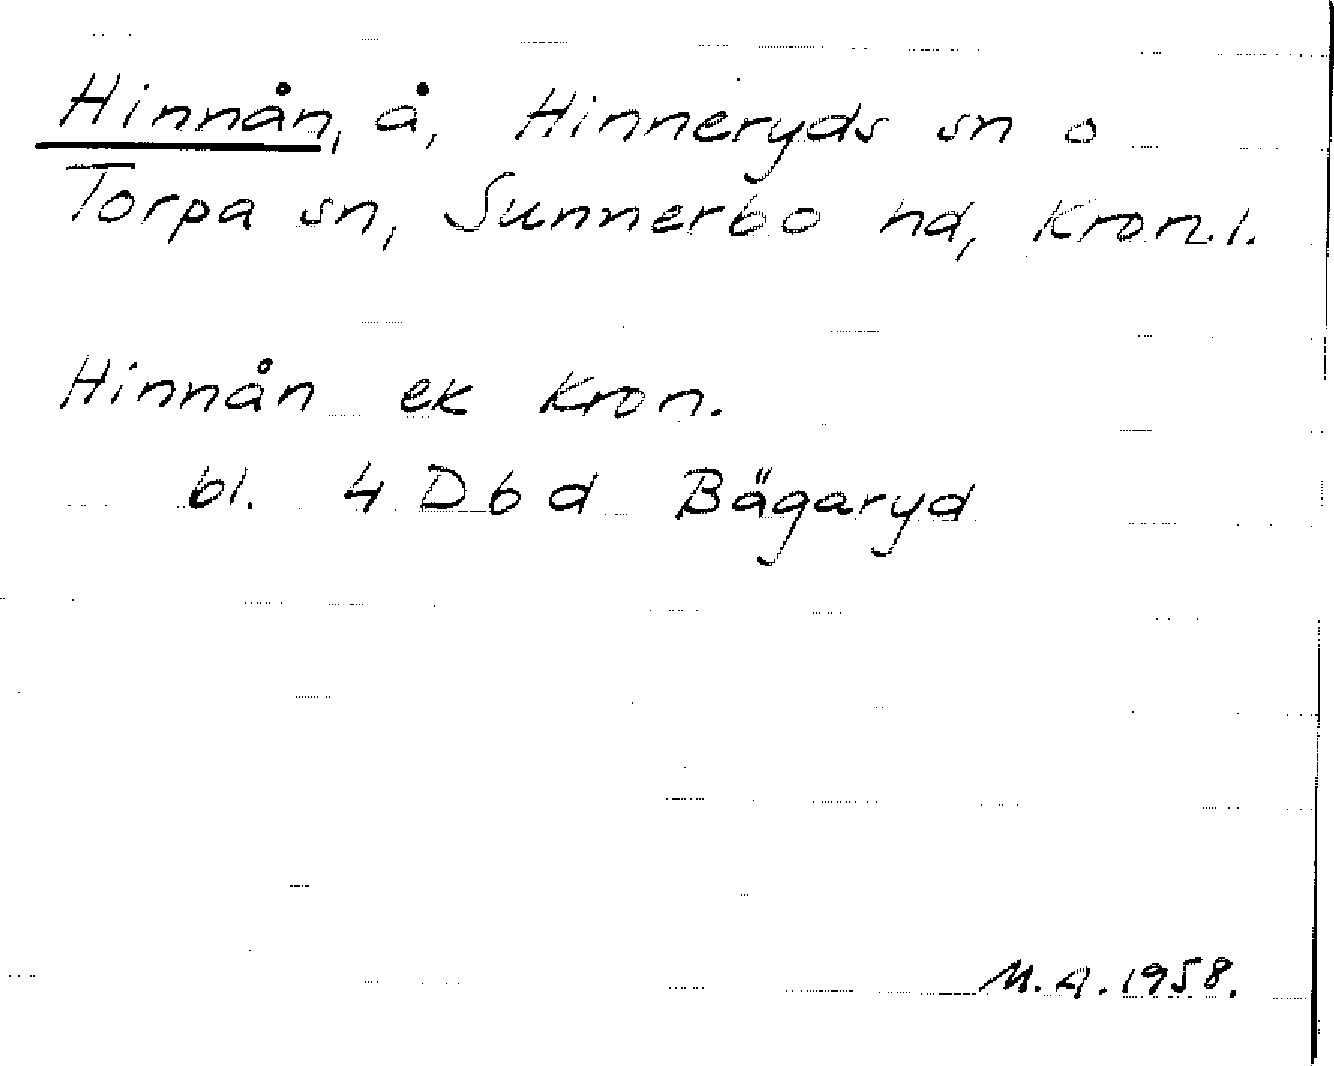 Hinnån, å, Hinneryds sn o
Torpa sn, Sunnerbo hd, Kron.l.
Hinnån ek Kron.
bl. 4 D b d Bägaryd
M.A. 1958.